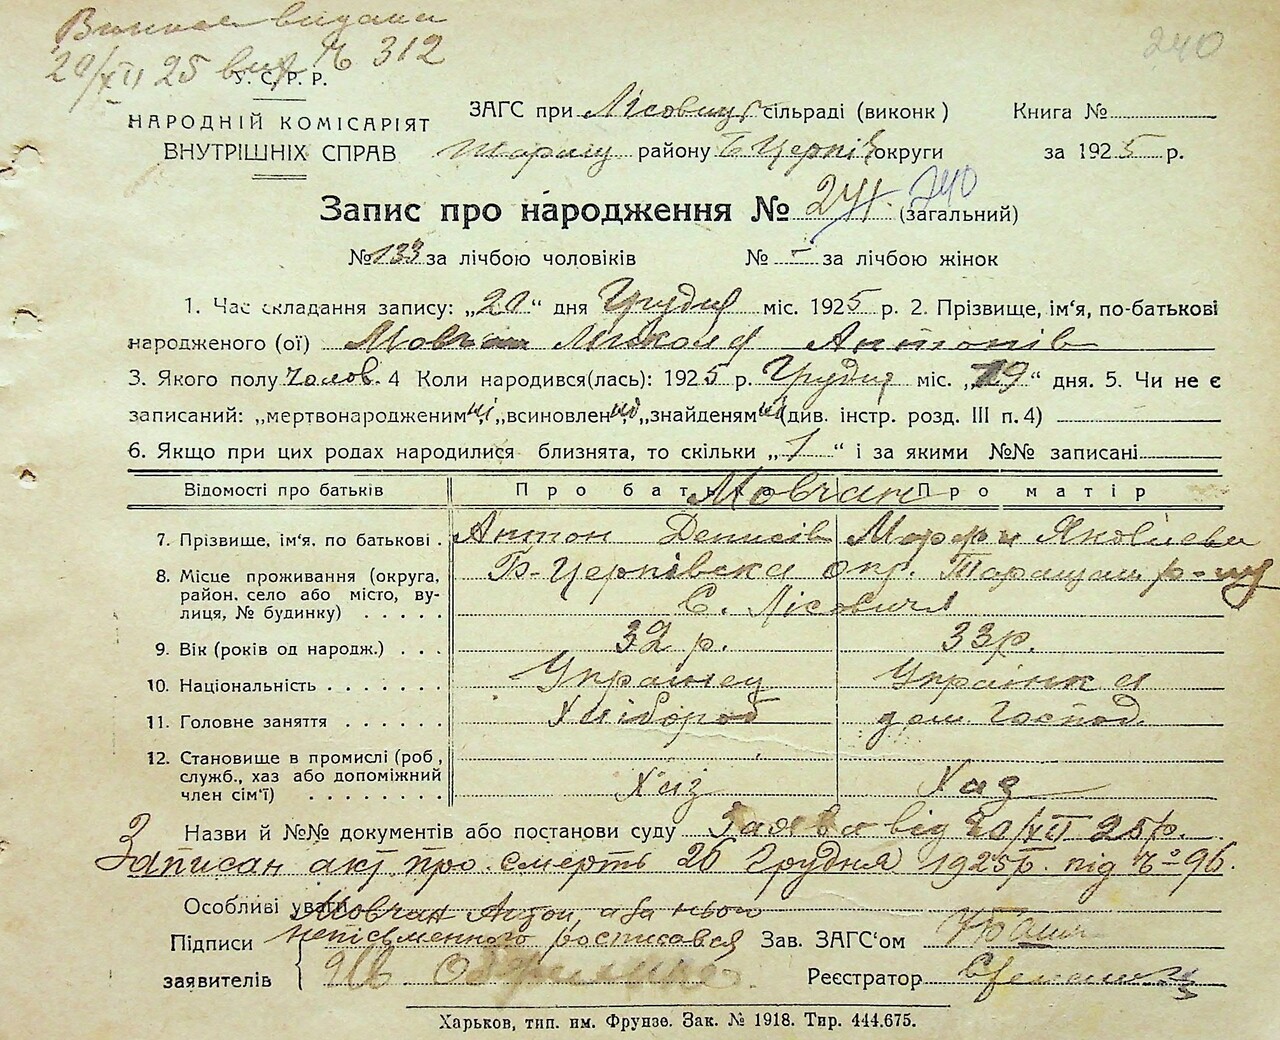 видана
20/XII 25 вих № 312
240
У. С. Р. Р.
НАРОДНІЙ КОМІСАРІЯТ
ВНУТРІШНІХ СПРАВ
ЗАГС при Лісовицк сільраді (виконк) Книга №
Таращ району Б Церків округи за 1925 р.
Запис про народження № 241. 240 (загальний)
№ 133 за лічбою чоловіків № - за лічбою жінок
1. Час складання запису: „20“ дня Грудня міс. 1925 р. 2. Прізвище, ім‘я, по-батькові
народженого (ої) Мовчан Микола Антонів
3. Якого полу Чолов. 4 Коли народився(лась): 1925 р. Грудня міс. „19“ дня. 5. Чи не є
записаний: „мертвонародженим ні, „всиновлен ні, „знайденям ні (див. інстр. розд. III п. 4)
6. Якщо при цих родах народилися близнята, то скільки „1“ і за якими №№ записані
Відомості про батьків Про батька Мовчан Про матір
7. Прізвище, ім‘я, по батькові . Антон Денисів Марфи Яковлева
8. Місце проживання (округа, Б-Церківська окр. Таращан. р-ну
район. село або місто, ву-
лиця, № будинку) . . . . . С. Лісовичі
9. Вік (років од народж.) . . . 32 р. 33 р.
10. Національність . . . . . . . Украінец Украінка
11. Головне заняття . . . . . . Хлібороб дом. Господ.
12. Становище в промислі (роб,
служб., хаз або допоміжний
член сім‘ї) . . . . . . . . Хаз Хаз
Назви й №№ документів або постанови суду Заява від 20/XII 25 р.
Записан акт про смерть 26 Грудня 1925 р. під № 96.
Особливі уваги Мовчан Антон, а за нього
Підписи неписьменного росписався Зав. ЗАГС‘ом
заявителів Реєстратор
Харьков, тип. им. Фрунзе. Зак. № 1918. Тир. 444.675.